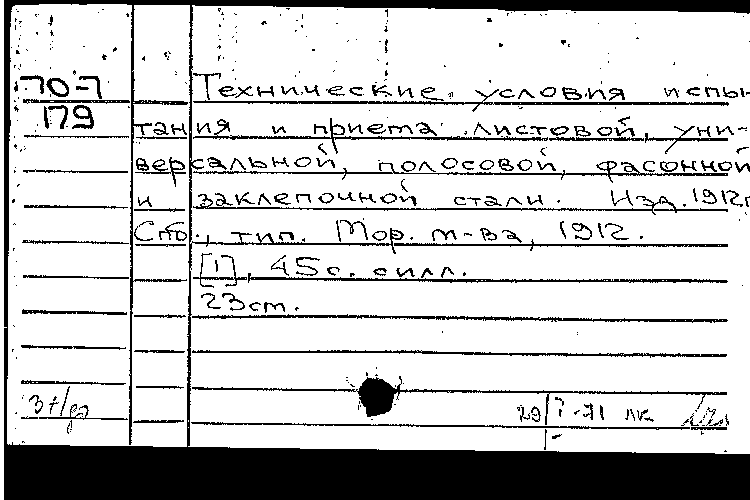 70-7
179
Технические условия испы
тания и приема листовой, уни-
версальной, полосовой, фасонной
и заклепочной стали. Изд. 1912г
Спб., тип. Мор. м-ва, 1912.
[1], 45с. силл.
23см.
29/7-71 лк